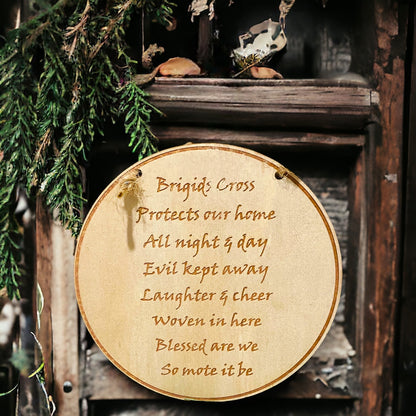 Brigids Cross
Protects our home
All night & day
Evil kept away
Laughter & cheer
Woven in here
Blessed are we
So mote it be